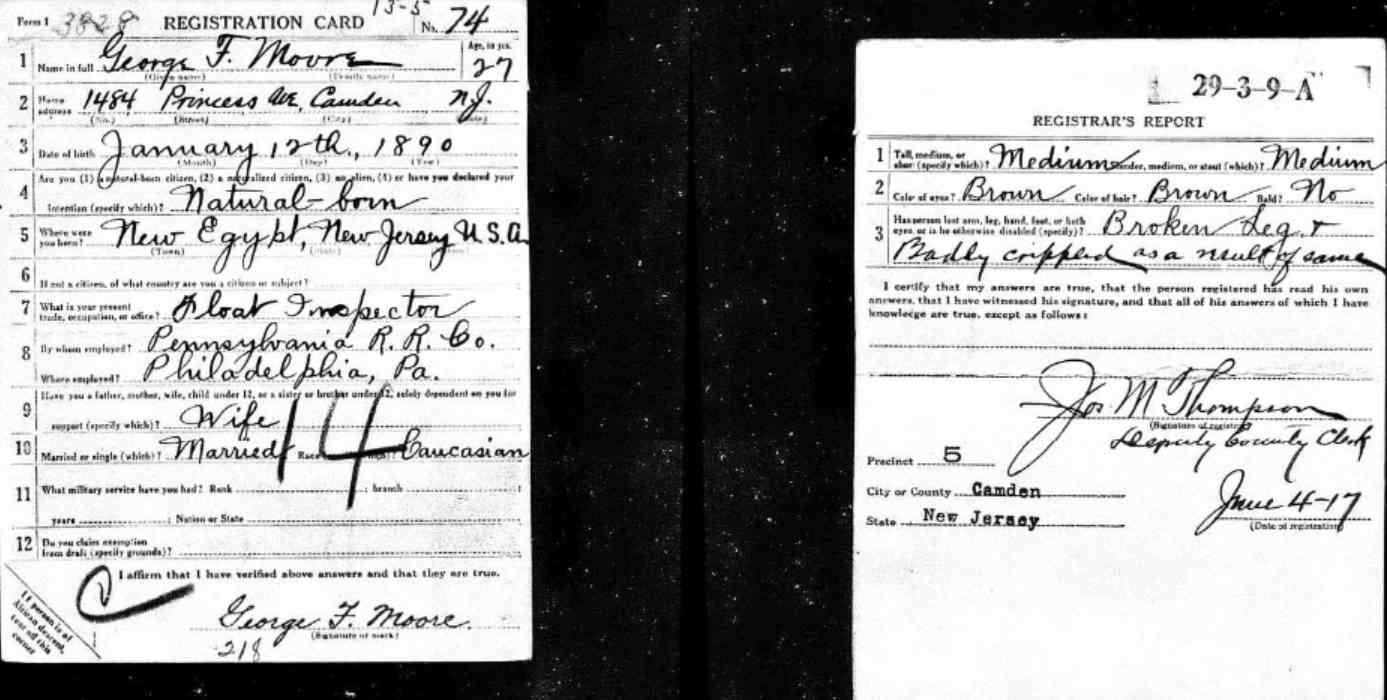 Form 1 3828 REGISTRATION CARD 13-5 No. 74
1 Name in full George F. Moore Age, in yrs. 27
(Given name) (Family name)
2 Home address 1484 Princess Ave, Camden N.J.
(No.) (Street) (City) (State)
3 Date of birth January 12th., 1890
(Month) (Day) (Year)
4 Are you (1) a natural-born citizen, (2) a naturalized citizen, (3) an alien, (4) or have you declared your
intention (specify which)? Natural-born
5 Where were you born? New Egypt, New Jersey U.S.A.
(Town) (State)
6 If not a citizen, of what country are you a citizen or subject?
7 What is your present trade, occupation, or office? Float Inspector
8 By whom employed? Pennsylvania R. R. Co.
Where employed? Philadelphia, Pa.
9 Have you a father, mother, wife, child under 12, or a sister or brother under 12, solely dependent on you for
support (specify which)? Wife
10 Married or single (which)? Married Race Caucasian
14
11 What military service have you had? Rank ; branch ;
years ; Nation or State
12 Do you claim exemption from draft (specify grounds)?
I affirm that I have verified above answers and that they are true.
George F. Moore.
(Signature or mark)
218
If person is of
African descent,
tear off this
corner
29-3-9-A
REGISTRAR'S REPORT
1 Tall, medium, or short (specify which)? Medium Slender, medium, or stout (which)? Medium
2 Color of eyes? Brown Color of hair? Brown Bald? No
3 Has person lost arm, leg, hand, foot, or both eyes, or is he otherwise disabled (specify)? Broken Leg &
Badly crippled as a result of same
I certify that my answers are true, that the person registered has read his own
answers, that I have witnessed his signature, and that all of his answers of which I have
knowledge are true, except as follows:
Jos M Thompson
(Signature of registrar)
Deputy County Clerk
Precinct 5
City or County Camden
State New Jersey
June 4-17
(Date of registration)